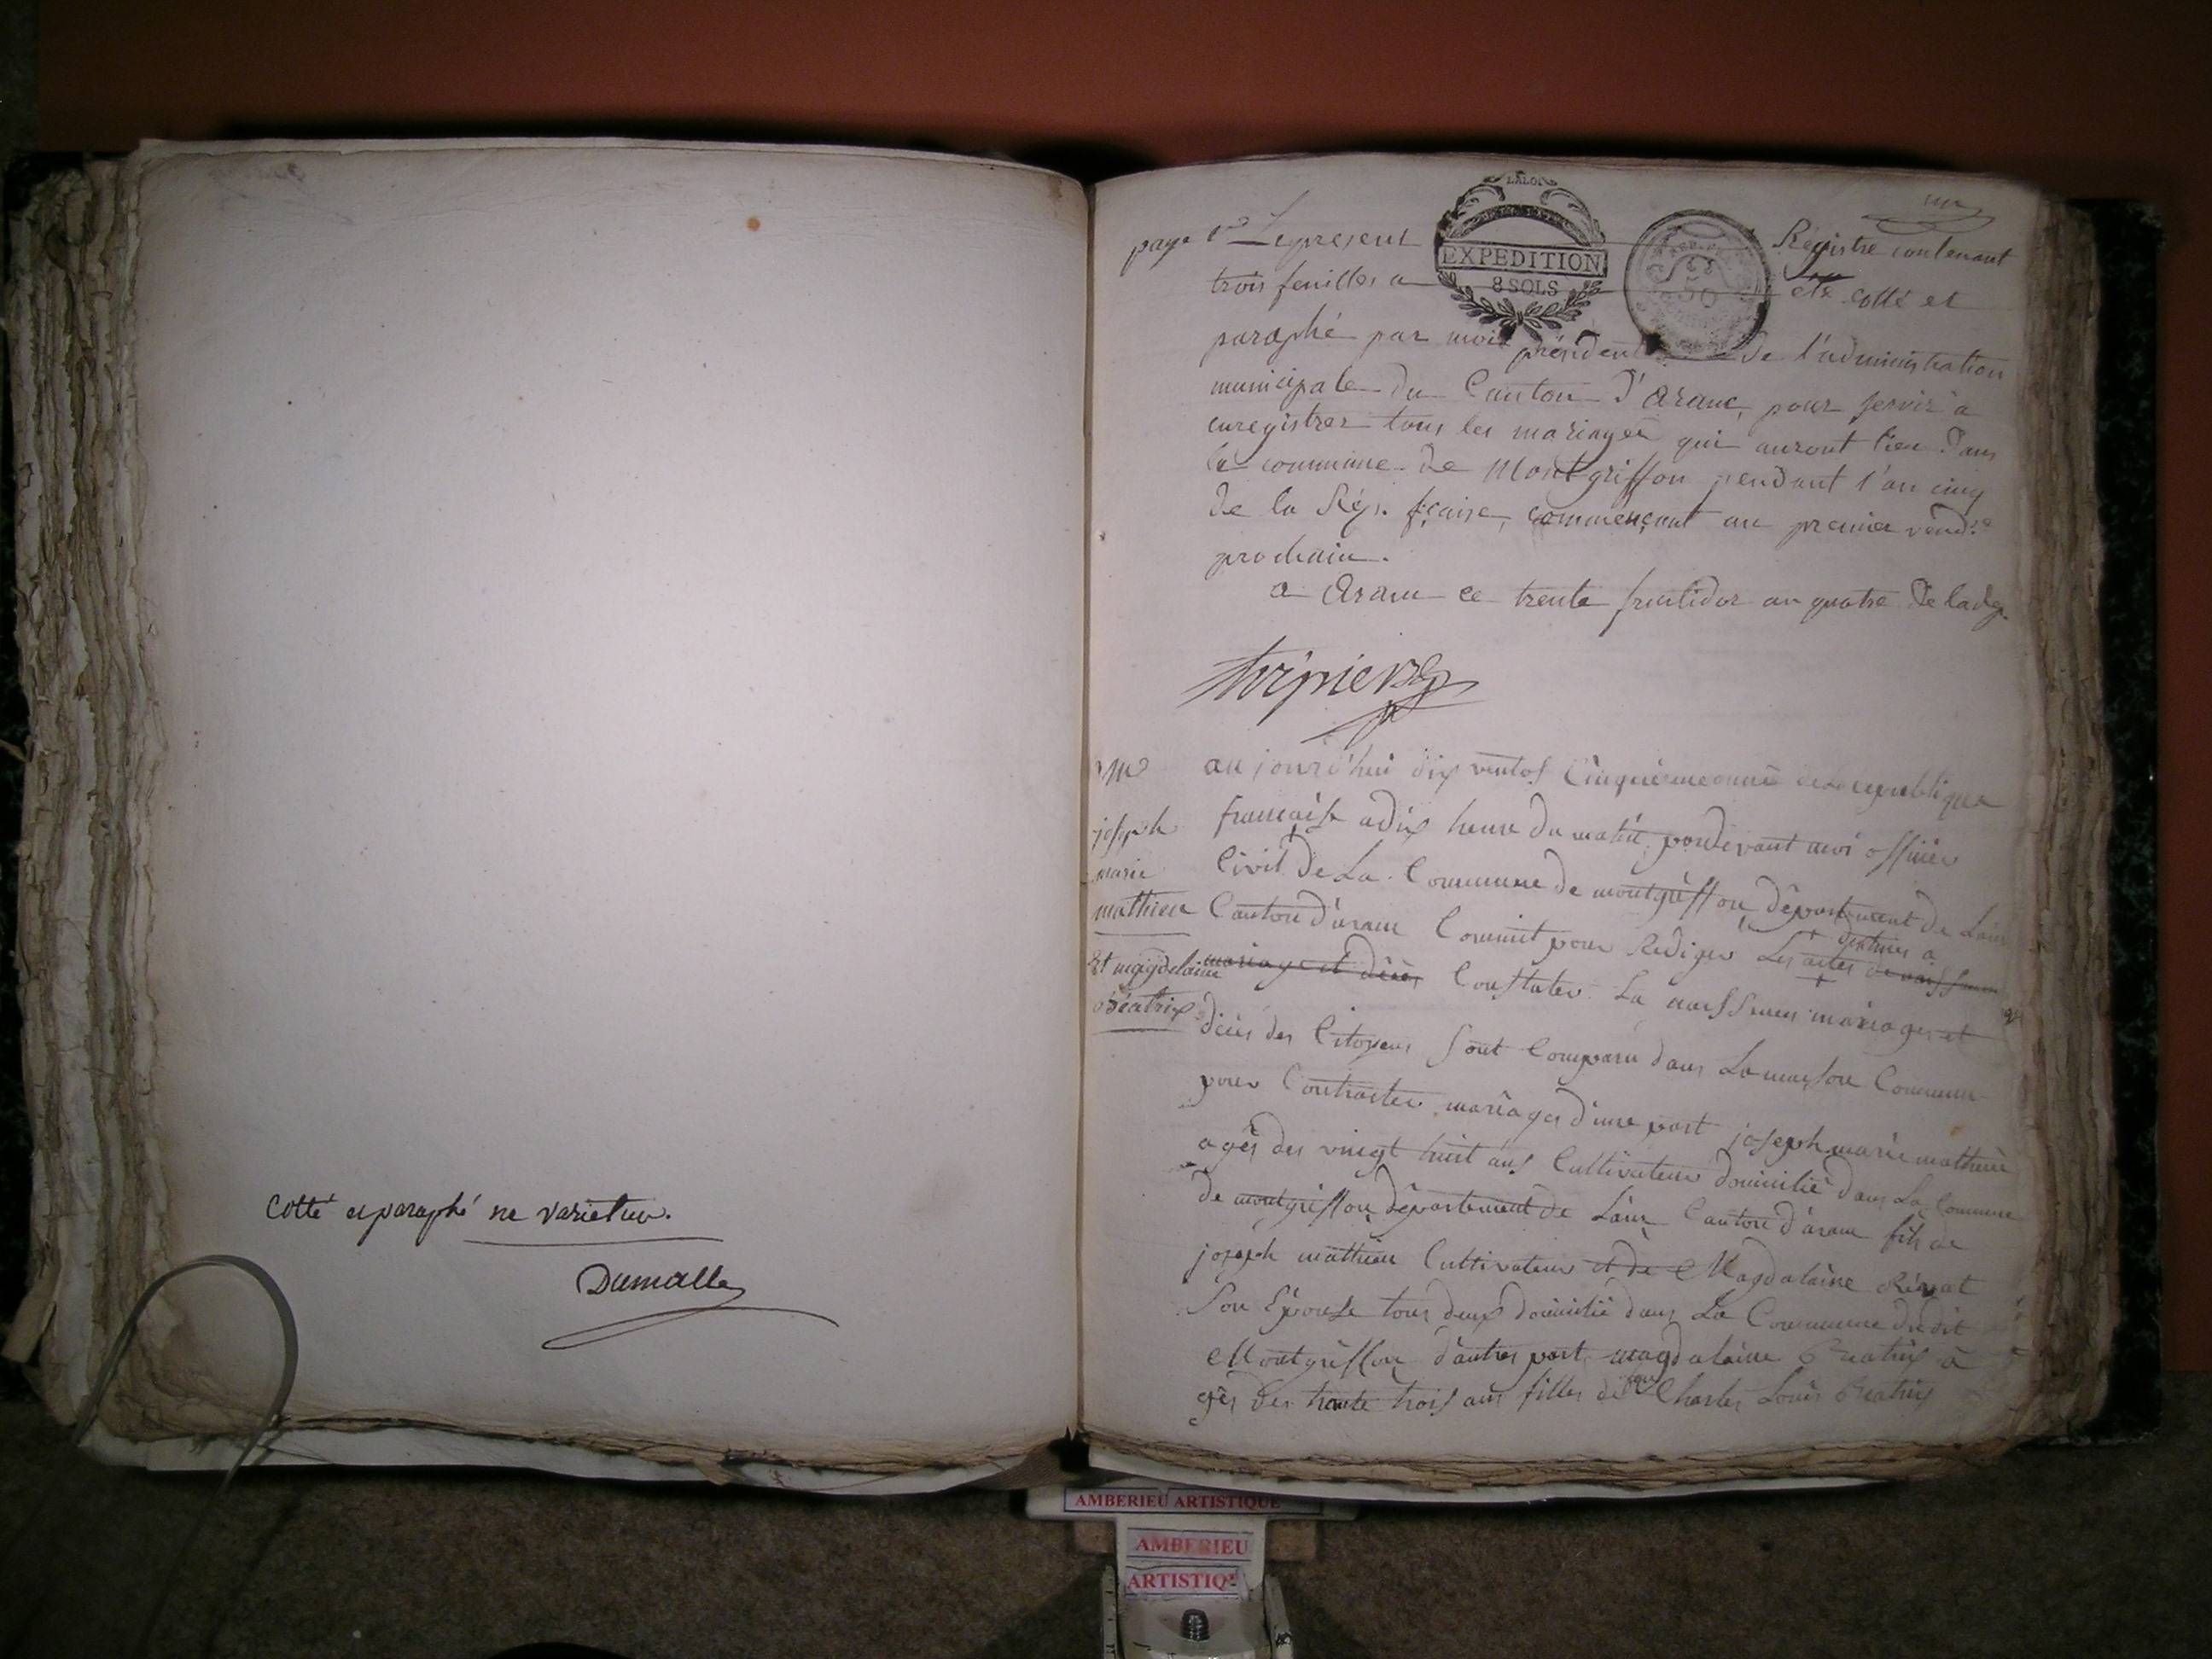 Cotté et paraphé ne varietur.
Dumalle
LALOI
EXPEDITION
8 SOLS
50
un
page 1re Le present Régistre contenant
trois feuilles a été cotté et
paraphé par moi président de l'administration
municipale du Canton d'Aranc, pour servir a
enregistrer tous les mariages qui auront lieu dans
la commune de Montgriffon pendant l'an cinq
de la Rép. fçaise, commençant au premier vend.re
prochain.
a Aranc ce trente fructidor an quatre de la Rép.
joseph
marie
mathieu
Et magdelaine
Béatrix
au jourd'hui dix ventos Cinquieme anné de la republique
francaise a dix heure du matin, pardevant moi officier
Civil De La Commune de montgriffon département de Lain
Canton d'aranc Commit pour Rediger Les actes de naissance
destines a
mariage et décès Constater La naissance mariages et
décès des Citoyens Sont Comparu dans La maison Commune
pour Contracter mariages d'une part joseph marie mathieu
agés des vingt huit ans Cultivateur domicilié dans La Commune
de montgriffon département de Lain Canton d'aranc fils de
joseph mathieu Cultivateur et de Magdalaine
Son Epouse tous deux domicilié dans La Commune dudit
Montgriffon d'autres part magdalaine Beatrix a
gés des trante trois ans filles de feu Charles Louis Beatrix
AMBERIEU ARTISTIQUE
AMBERIEU
ARTISTIQ